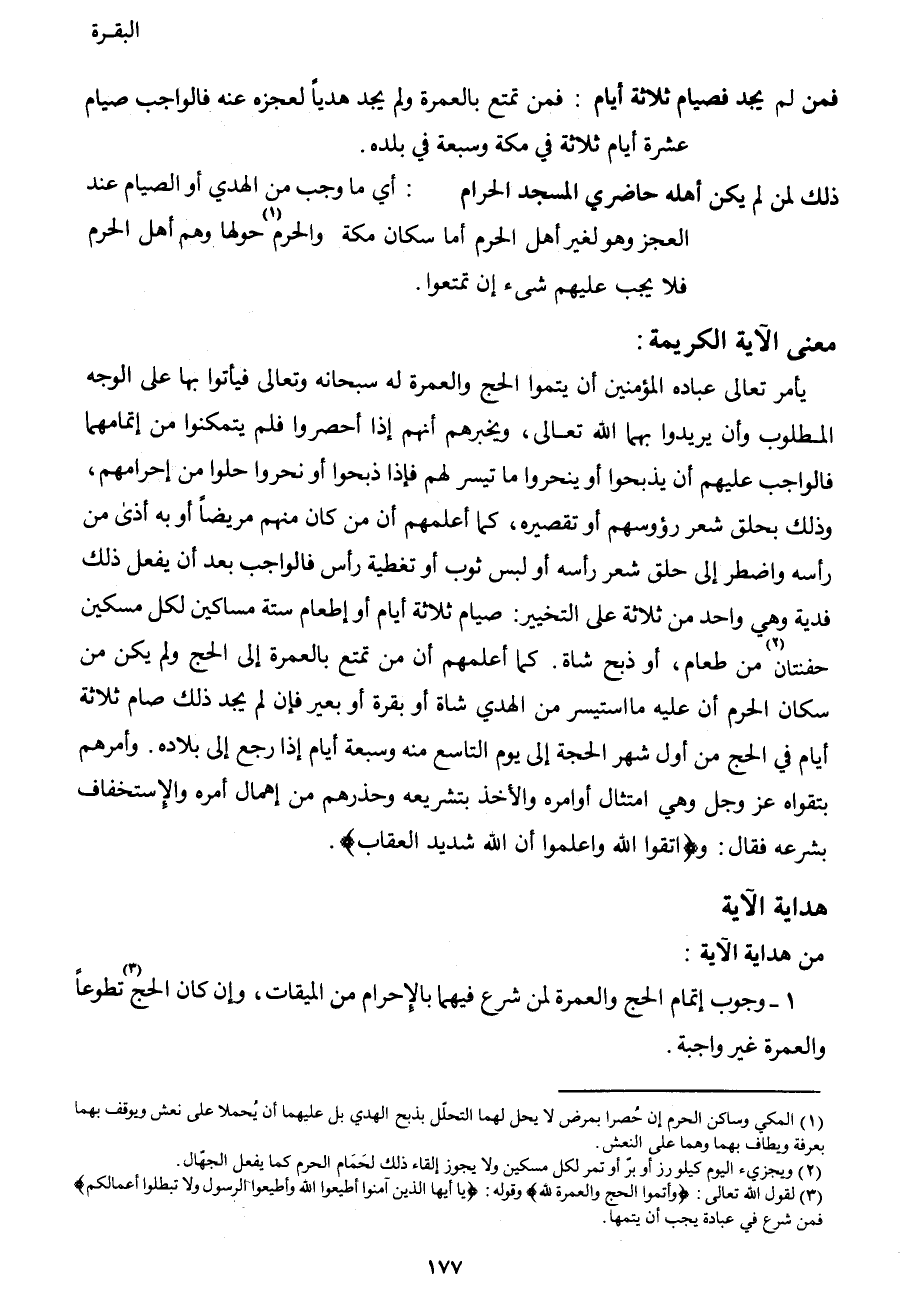 البقـرة
فمن لم يجد فصيام ثلاثة أيام : فمن تمتع بالعمرة ولم يجد هدياً لعجزه عنه فالواجب صيام
عشرة أيام ثلاثة في مكة وسبعة في بلده .
ذلك لمن لم يكن أهله حاضري المسجد الحرام : أي ما وجب من الهدي أو الصيام عند
العجز وهو لغير أهل الحرم أما سكان مكة والحرم(١) حولها وهم أهل الحرم
فلا يجب عليهم شىء إن تمتعوا .
معنى الآية الكريمة :
يأمر تعالى عباده المؤمنين أن يتموا الحج والعمرة له سبحانه وتعالى فيأتوا بها على الوجه
المطلوب وأن يريدوا بهما الله تعـالى، ويخبرهم أنهم إذا أحصروا فلم يتمكنوا من إتمامهما
فالواجب عليهم أن يذبحوا أو ينحروا ما تيسر لهم فإذا ذبحوا أو نحروا حلوا من إحرامهم،
وذلك بحلق شعر رؤوسهم أو تقصيره، كما أعلمهم أن من كان منهم مريضاً أو به أذىٰ من
رأسه واضطر إلى حلق شعر رأسه أو لبس ثوب أو تغطية رأس فالواجب بعد أن يفعل ذلك
فدية وهي واحد من ثلاثة على التخيير: صيام ثلاثة أيام أو إطعام ستة مساكين لكل مسكين
حفنتان(٢) من طعام، أو ذبح شاة. كما أعلمهم أن من تمتع بالعمرة إلى الحج ولم يكن من
سكان الحرم أن عليه مااستيسر من الهدي شاة أو بقرة أو بعير فإن لم يجد ذلك صام ثلاثة
أيام في الحج من أول شهر الحجة إلى يوم التاسع منه وسبعة أيام إذا رجع إلى بلاده. وأمرهم
بتقواه عز وجل وهي امتثال أوامره والأخذ بتشريعه وحذرهم من إهمال أمره والإستخفاف
بشرعه فقال: و﴿اتقوا الله واعلموا أن الله شديد العقاب﴾.
هداية الآية
من هداية الآية :
١ ـ وجوب إتمام الحج والعمرة لمن شرع فيهما بالإحرام من الميقات، وإن كان الحج(٣) تطوعاً
والعمرة غير واجبة .
(١) المكي وساكن الحرم إن حُصرا بمرض لا يحل لهما التحلّل بذبح الهدي بل عليهما أن يُحملا على نعش ويوقف بهما
بعرفة ويطاف بهما وهما على النعش.
(٢) ويجزيء اليوم كيلو رز أو برّ أو تمر لكل مسكين ولا يجوز إلقاء ذلك لحَمَام الحرم كما يفعل الجهّال.
(٣) لقول الله تعالى: ﴿وأتموا الحج والعمرة لله﴾ وقوله: ﴿يا أيها الذين آمنوا أطيعوا الله وأطيعوا الرسول ولا تبطلوا أعمالكم﴾
فمن شرع في عبادة يجب أن يتمها.
١٧٧